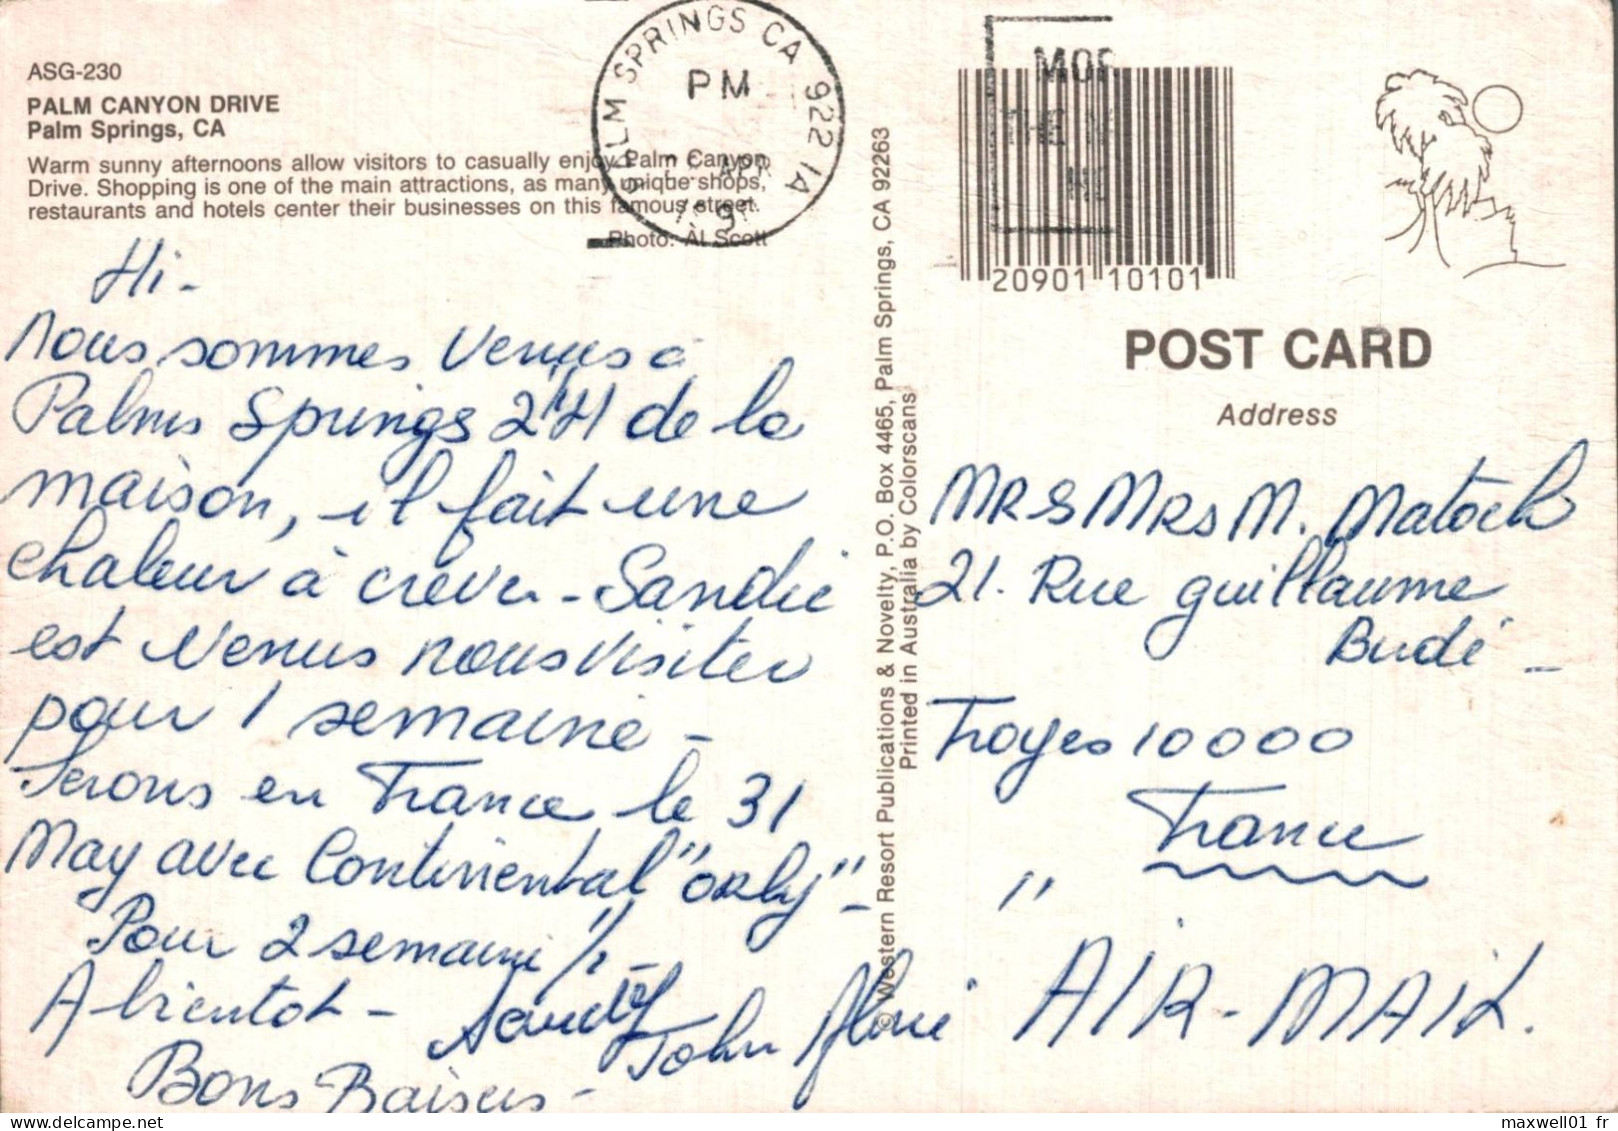 ASG-230
PALM CANYON DRIVE
Palm Springs, CA
Warm sunny afternoons allow visitors to casually enjoy Palm Canyon
Drive. Shopping is one of the main attractions, as many unique shops,
restaurants and hotels center their businesses on this famous street.
Photo: Al Scott
PALM SPRINGS CA 922 1A
PM
APR
Hi -
Nous sommes venus à
Palms Springs 2 H de la
maison, il fait une
chaleur à crever - Sandie
est venus nous visiter
pour 1 semaine -
Serons en France le 31
May avec Continental "orly" -
Pour 2 semaine 1/2 -
A bientot - Sandy
John
Bons Baisers -
© Western Resort Publications & Novelty, P.O. Box 4465, Palm Springs, CA 92263
Printed in Australia by Colorscans
MOR
THE
20901 10101
POST CARD
Address
MRS MRS M. Matock
21. Rue guillaume
Budé -
Troyes 10000
France
"
AIR-MAIL.
maxwell01_fr